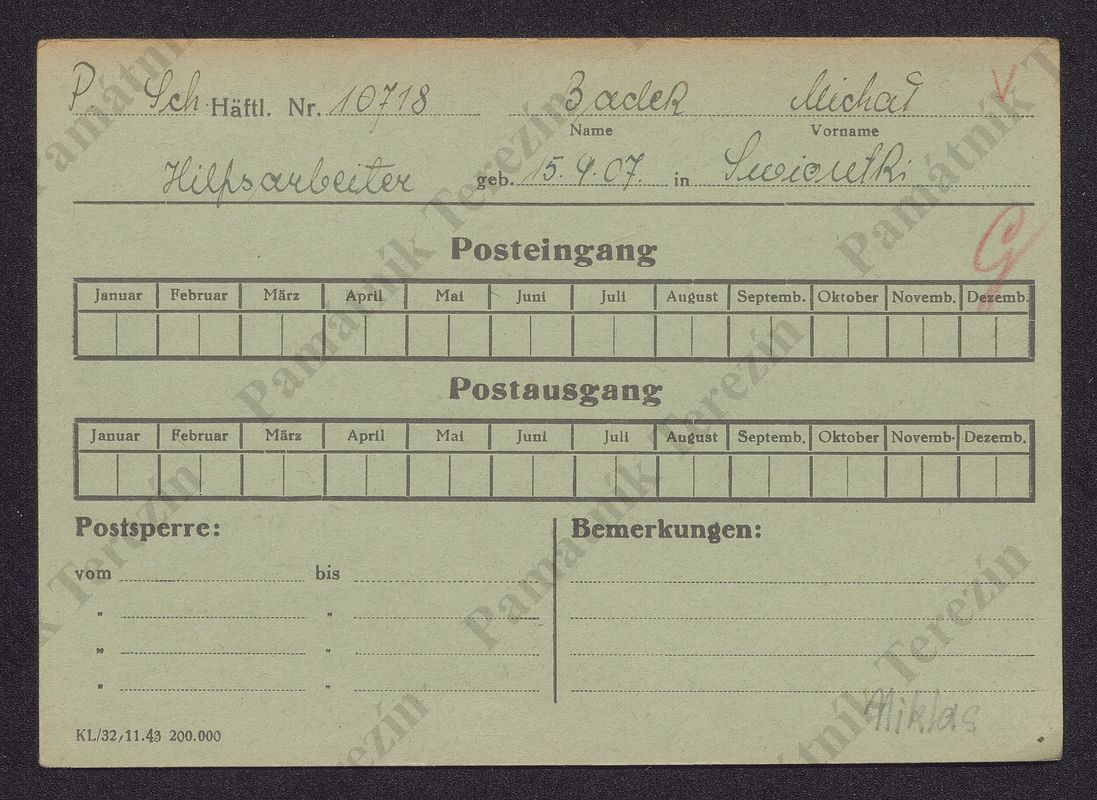 P Sch. Häftl. Nr. 10718 Badek Michał V
Name Vorname
Hilfsarbeiter geb. 15.9.07. in
G
Posteingang
Januar Februar März April Mai Juni Juli August Septemb. Oktober Novemb. Dezemb.
Postausgang
Januar Februar März April Mai Juni Juli August Septemb. Oktober Novemb. Dezemb.
Postsperre: Bemerkungen:
vom bis
" "
" "
" "
KL/32,11.43 200.000
Miklas
Památník Terezín